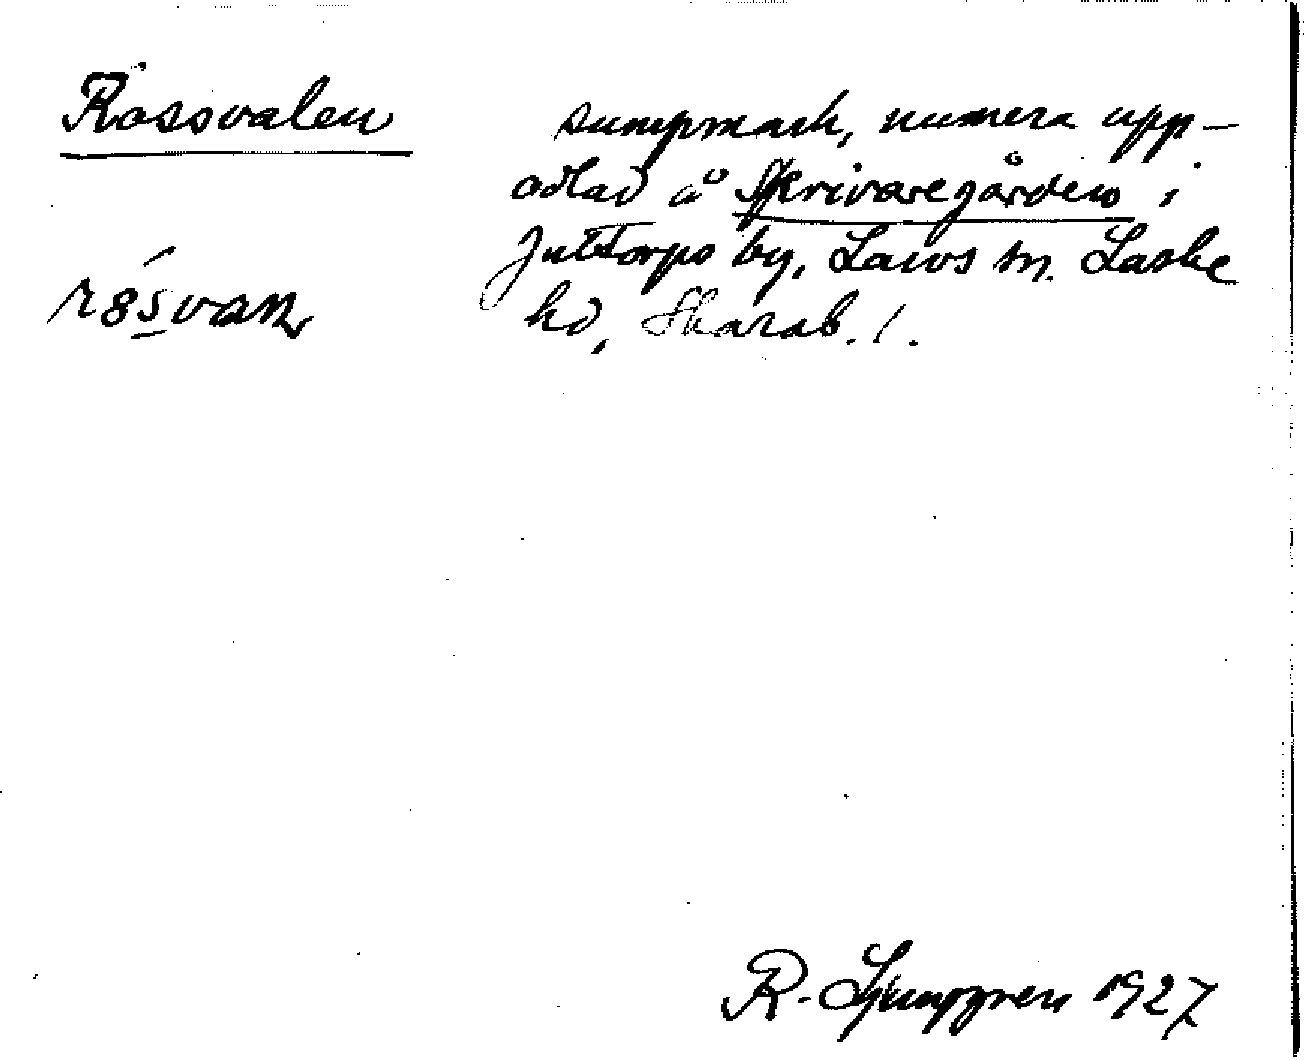 Rössvalen
sumpmark, numera upp-
odlad å Skrivaregården i
Juttorps by, Lavs sn. Laske
hd, Skarab. l.
R. Ljunggren 1927